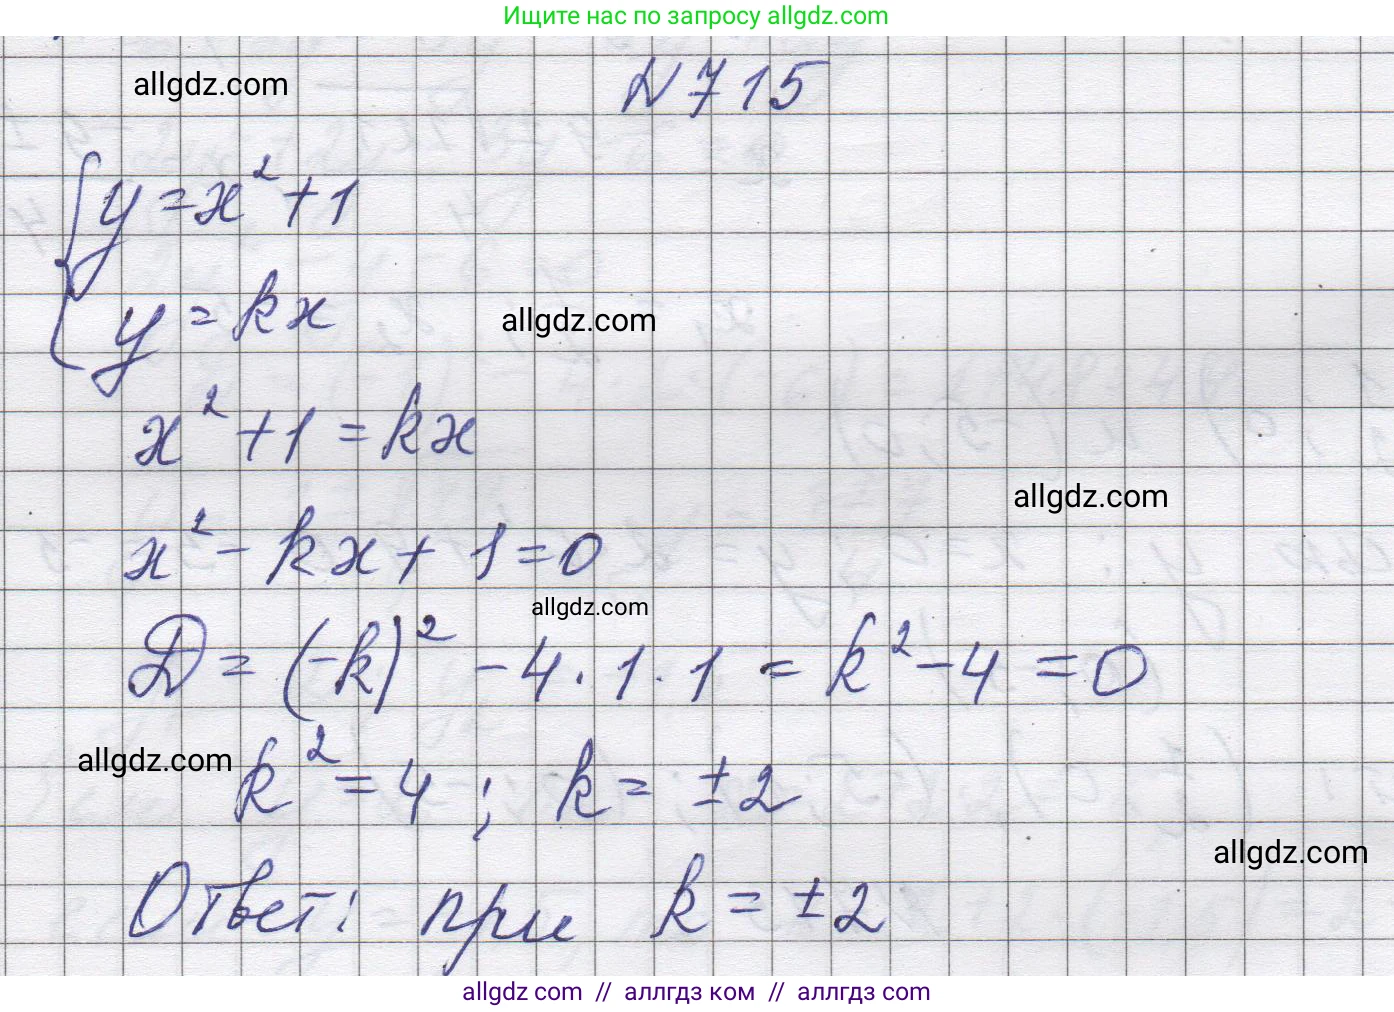 Ищите нас по запросу allgdz.com
allgdz.com
N 715
y = x² + 1
y = kx
allgdz.com
x² + 1 = kx
allgdz.com
x² - kx + 1 = 0
allgdz.com
D = (-k)² - 4 · 1 · 1 = k² - 4 = 0
allgdz.com
k² = 4 ; k = ±2
allgdz.com
Ответ: при k = ±2
allgdz.com // аллгдз ком // аллгдз com